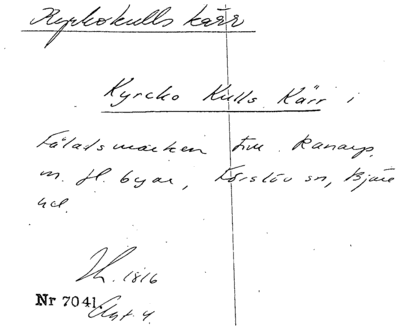 Kyrkokulls kärr
Kyrcko Kulls Kärr i
Fåladsmarken till Ranarp,
m. fl. byar, Förslöv sn, Bjäre
hd.
Lh. 1816
Nr 7041. Akt 4.